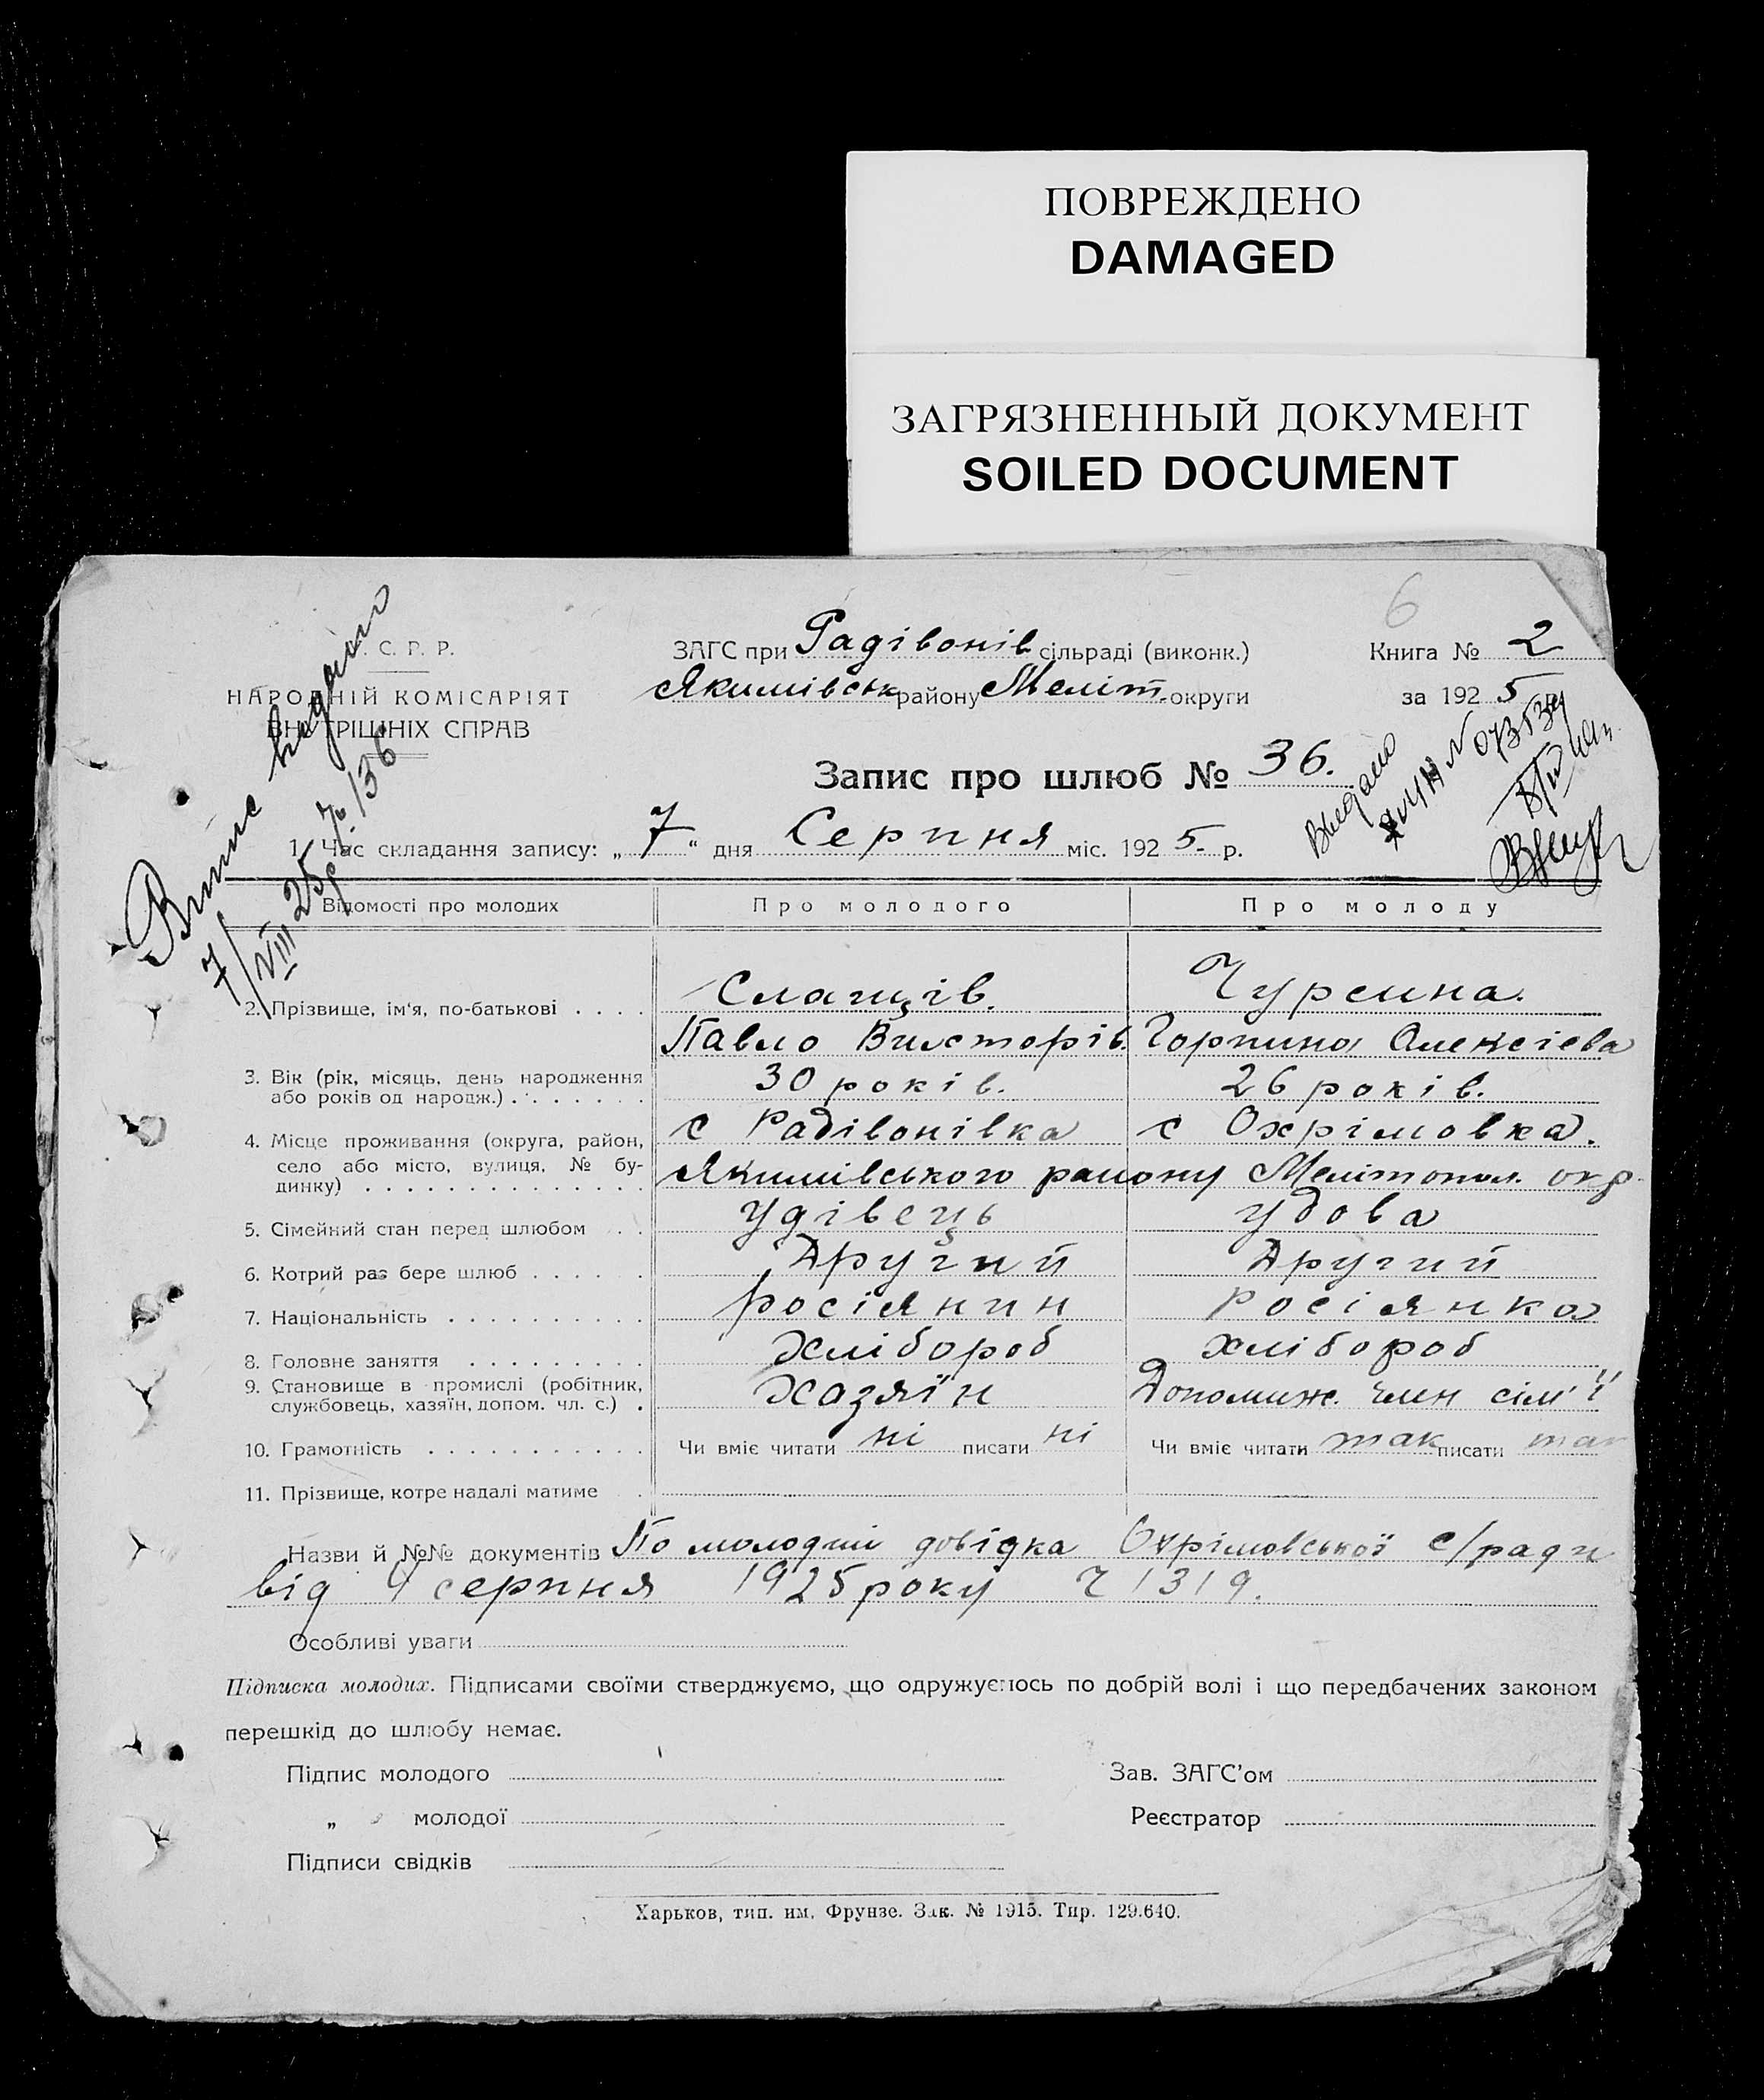 ПОВРЕЖДЕНО
DAMAGED
ЗАГРЯЗНЕННЫЙ ДОКУМЕНТ
SOILED DOCUMENT
6
С. Р. Р.
НАРОДНІЙ КОМІСАРІЯТ
ВНУТРІШНІХ СПРАВ
Випис видано
7/VIII 25 р. № 136
ЗАГС при Радівонів сільраді (виконк.)
Якимівськ району Меліт. округи
Книга № 2
за 1925 р.
Запис про шлюб № 36.
Выдано
ЯЦ № 073534
1. Час складання запису: „7“ дня Серпня міс. 1925 р.
Відомості про молодих Про молодого Про молоду
2. Прізвище, ім'я, по-батькові . . . . Слащів. Чурсина.
Павло Вікторів. Горпина Алексієва
3. Вік (рік, місяць, день народження
або років од народж.) . . . . . . . 30 років. 26 років.
4. Місце проживання (округа, район, с Радівонівка с Охрімовка.
село або місто, вулиця, № бу-
динку) . . . . . . . . . . . . . . Якимівського району Мелітопол. окр.
5. Сімейний стан перед шлюбом . . Удівець удова
6. Котрий раз бере шлюб . . . . . Другий Другий
7. Національність . . . . . . . . . . росіянин росіянка
8. Головне заняття . . . . . . . . . хлібороб хлібороб
9. Становище в промислі (робітник,
службовець, хазяїн, допом. чл. с.) . Хазяїн Допомиж. член сім'ї
10. Грамотність . . . . . . . . . . . Чи вміє читати ні писати ні Чи вміє читати так писати так
11. Прізвище, котре надалі матиме .
Назви й №№ документів По молодий довідка Охрімовської с/ради
від серпня 1925 року Ч 1319.
Особливі уваги
Підписка молодих. Підписами своїми стверджуємо, що одружуємось по добрій волі і що передбачених законом
перешкід до шлюбу немає.
Підпис молодого Зав. ЗАГС'ом
„ молодої Реєстратор
Підписи свідків
Харьков, тип. им. Фрунзе. Зак. № 1915. Тир. 129.640.